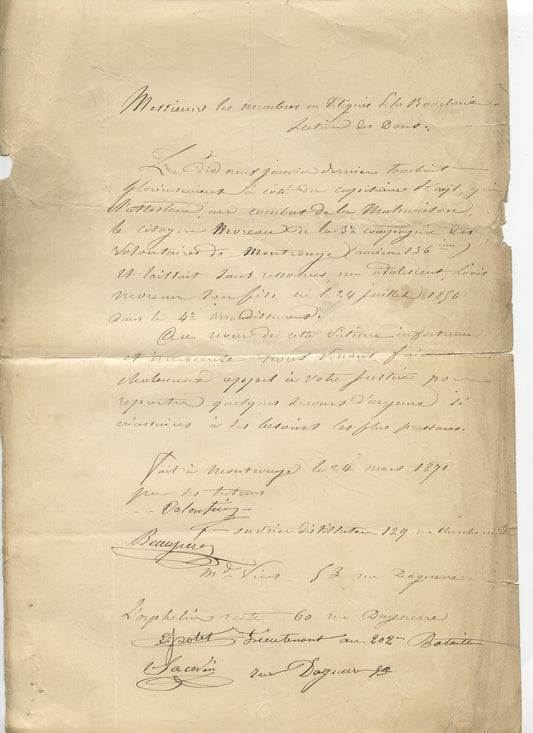 Messieurs les membres ou Délégués de la
section des Dons.
Le dix neuf janvier dernier tombait
glorieusement à côté du capitaine
au combat de la Malmaison,
le citoyen Moreau de la 3e compagnie des
Volontaires de Montrouge (ancien 136ième)
Et laissait sans ressources, un adolescent, Louis
moreau son fils, né le 24 juillet 1856
dans le 4e arrondissement.
Au nom de cette victime infortunée
et innocente nous venons faire
chaleureux appel à votre justice pour
reporter quelques secours d'urgence si
nécessaires à les besoins les plus pressans.
fait à Montrouge le 24 mars 1871
pour les tuteurs
ouvrier distillateur 129 rue
Beaupère
Md Vins 53 rue Daguerre
L'orphelin reste 60 rue Daguerre
Lieutenant au 202me Bataillon
rue Daguerre